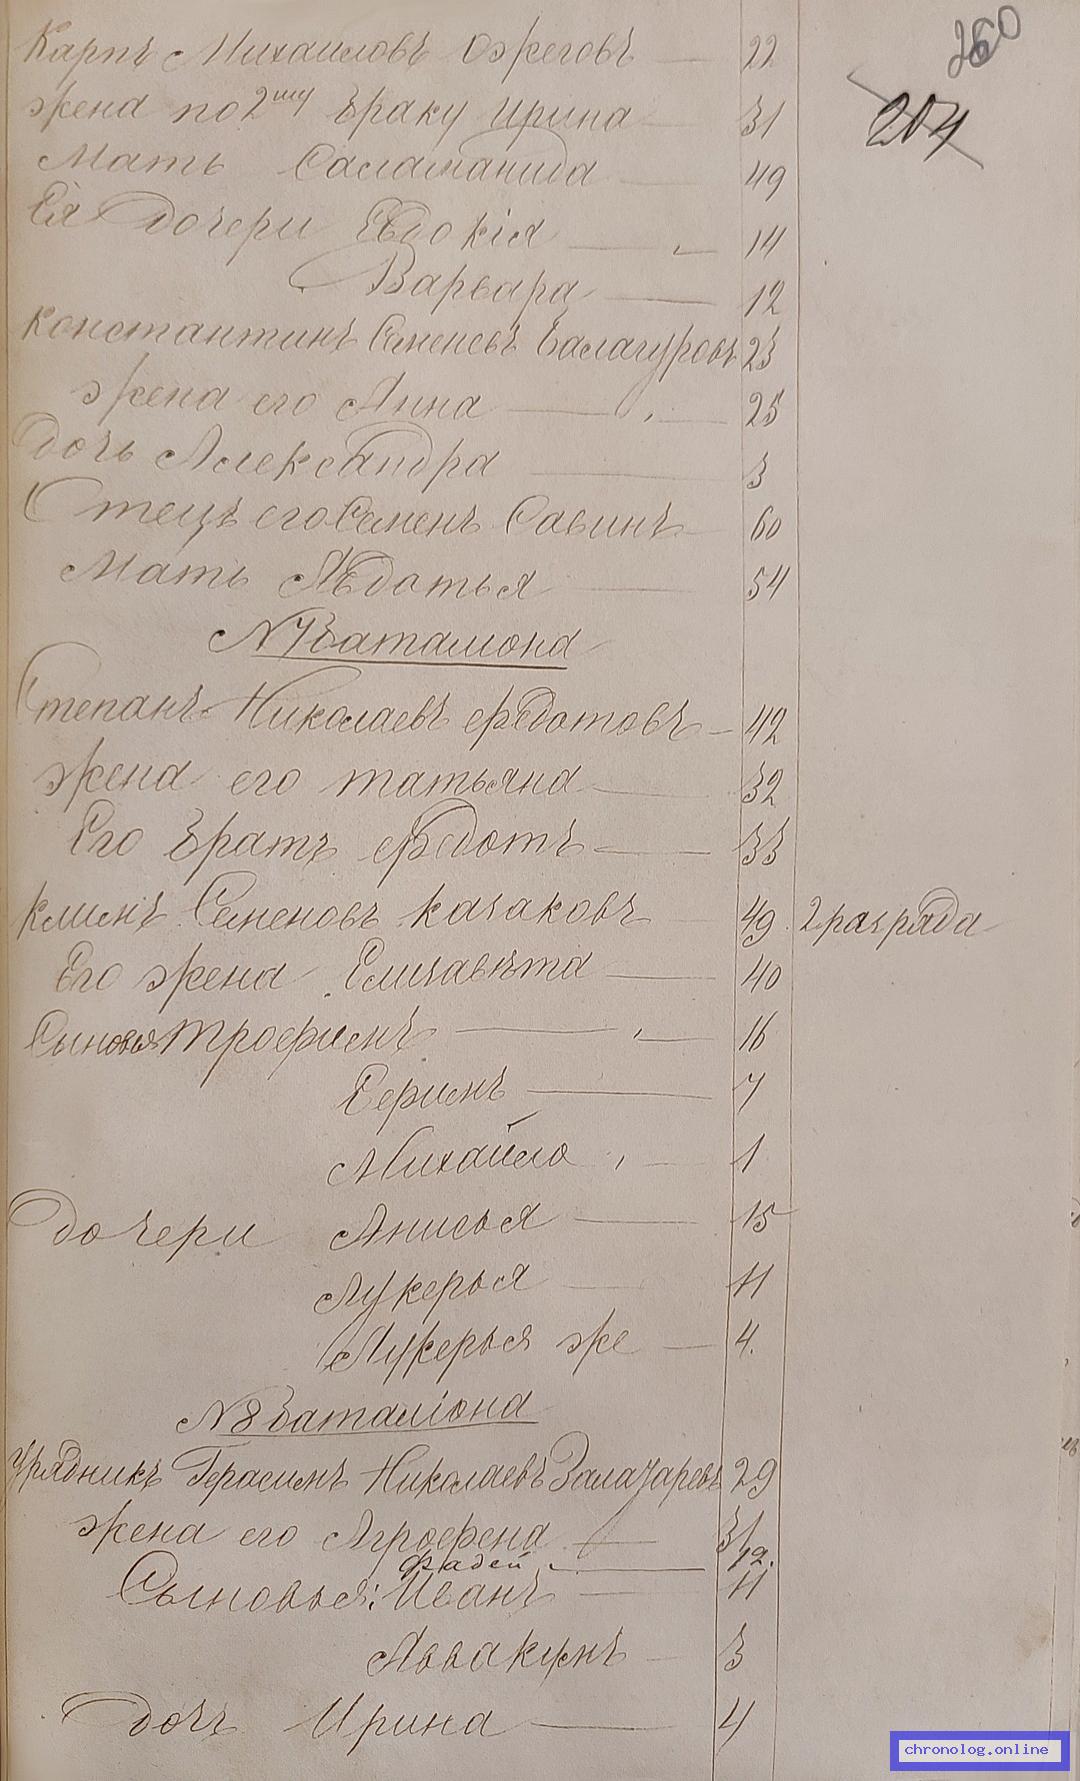 260
204
Карпъ Михаиловъ Ожеговъ — 22
жена по 2му браку Ирина — 31
Мать Саламанида — 49
Ея дочери Евдокія — 14
Варвара — 12
Константинъ Семеновъ Балагуровъ 23
жена его Анна — 25
дочь Александра — 3
Отецъ его Семенъ Савинъ — 60
Мать Авдотья — 54
№ 7 Баталиона
Степанъ Николаевъ Федотовъ — 42
жена его Татьяна — 32
Его братъ Федотъ — 33
Климъ Семеновъ Казаковъ 49 2 разряда
Его жена Елизавѣта — 40
Сыновья Трофимъ — 16
Ефимъ — 7
Михайло — 1
дочери Анисья — 15
Лукерья — 11
Лукерья же — 4.
№ 8 Баталіона
Урядникъ Герасимъ Николаевъ Залазаревъ 29
жена его Агрофена — 31
Фадей — 12.
Сыновья: Иванъ — 11
Аввакумъ — 3
дочь Ирина — 4
chronolog.online